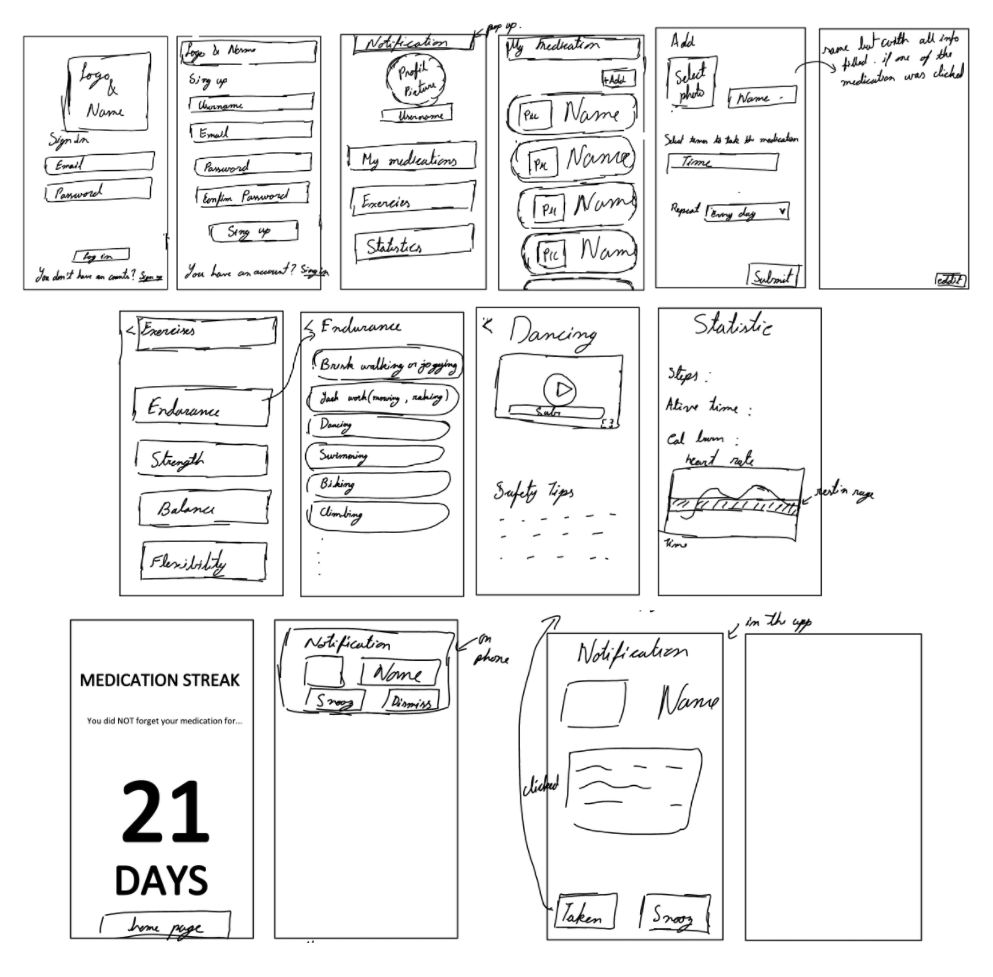 Logo
&
Name
Sign In
Email
Password
Log in
You don't have an counts? Sign up
Logo & Name
Sing up
Username
Email
Password
Confirm Password
Sing up
You have an account? Sing in
pop up.
Notification
Profil
Picture
Username
My medications
Exercies
Statistics
My Medication
+Add
Pic Name
Pic Name
Pic Name
Pic Name
Add
Select
photo
Name.
Select times to take the medication
Time
Repeat Every day
Submit
same but with all info
filled. if one of the
medication was clicked
eddit
< Exercises
Endurance
Strength
Balance
Flexibility
< Endurance
Brisk walking or jogging
Yard work (mowing, raking)
Dancing
Swimming
Biking
Climbing
< Dancing
Subs
Safety Tips
Statistic
Steps:
Ative time:
Cal burn:
heart rate
restin rage
time
MEDICATION STREAK
You did NOT forget your medication for...
21
DAYS
home page
Notification
Name
Snooz Dismiss
on
phone
in the app
Notification
Name
clicked
Taken Snooz